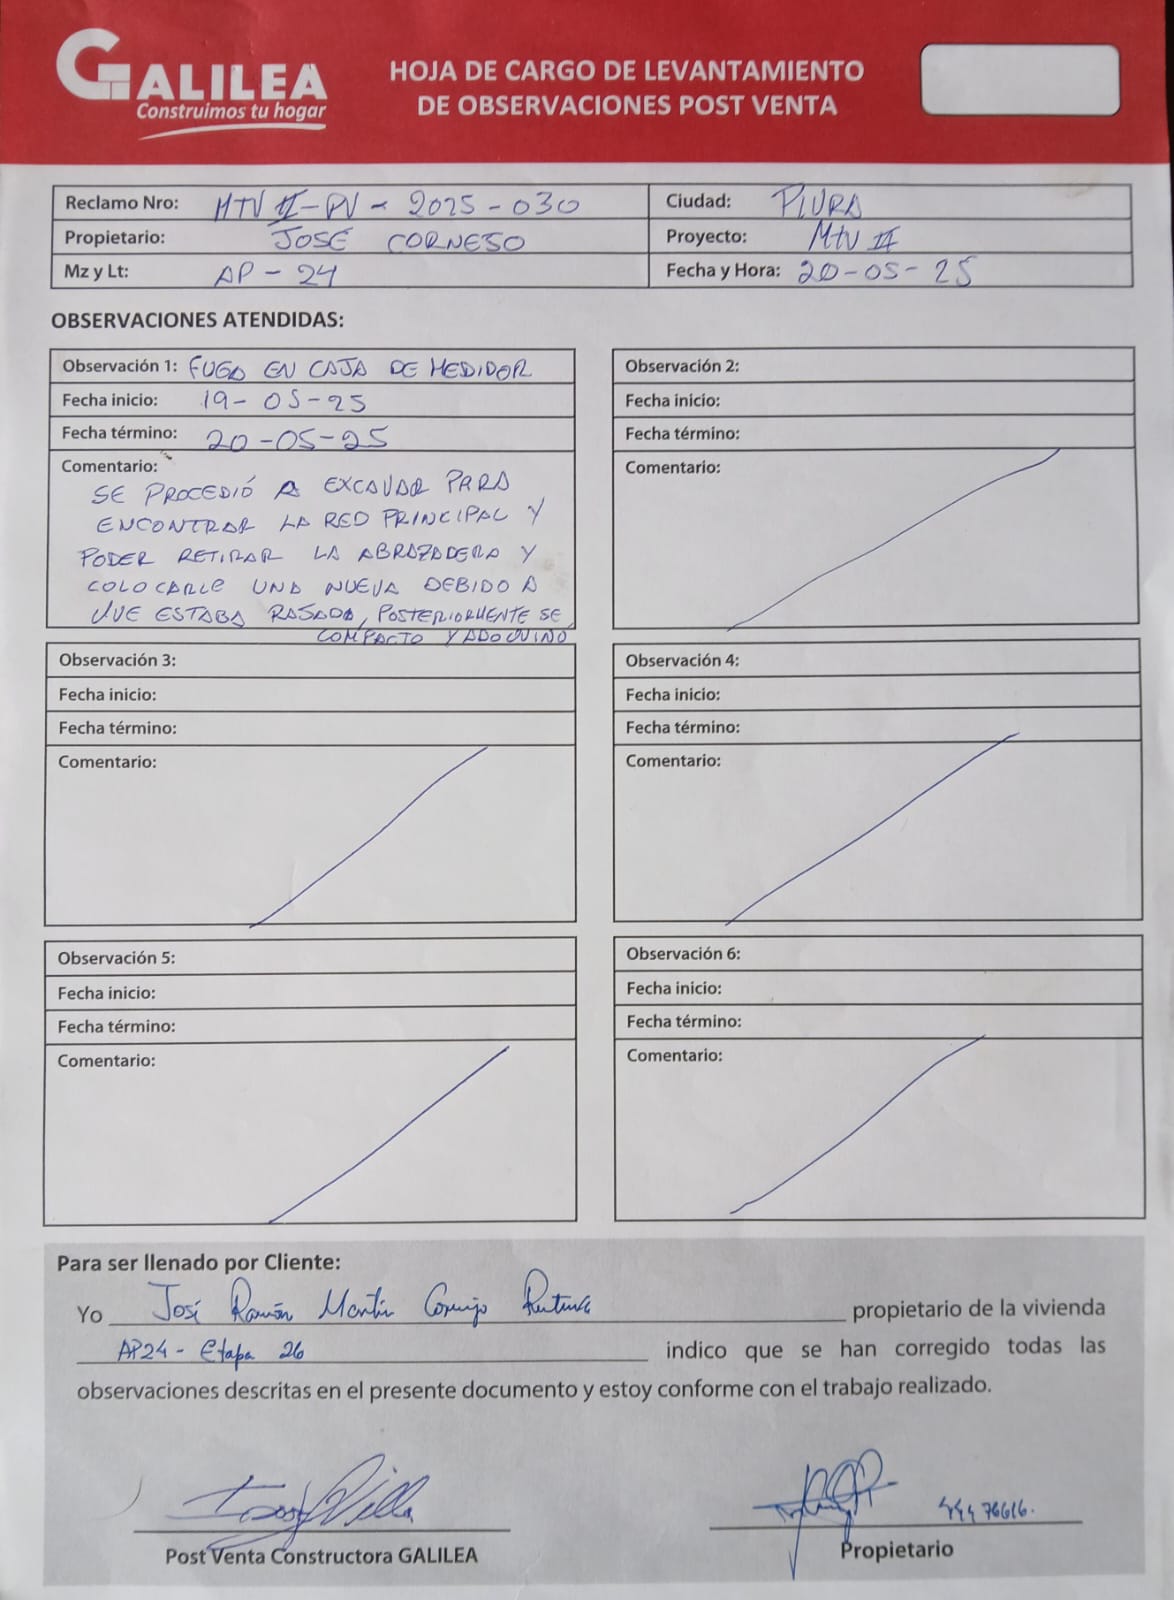 GALILEA
Construimos tu hogar
HOJA DE CARGO DE LEVANTAMIENTO
DE OBSERVACIONES POST VENTA
Reclamo Nro: MTV II-PV - 2025-030
Ciudad: PIURA
Propietario: JOSÉ CORNESO
Proyecto: MTV II
Mz y Lt: AP - 24
Fecha y Hora: 20-05-25
OBSERVACIONES ATENDIDAS:
Observación 1: FUGA EN CAJA DE MEDIDOR
Fecha inicio: 19-05-25
Fecha término: 20-05-25
Comentario:
SE PROCEDIÓ A EXCAVAR PARA
ENCONTRAR LA RED PRINCIPAL Y
PODER RETIRAR LA ABRAZADERA Y
COLOCARLE UNA NUEVA DEBIDO A
QUE ESTABA RASADA, POSTERIORMENTE SE
COMPACTO Y ADOQUINO
Observación 2:
Fecha inicio:
Fecha término:
Comentario:
Observación 3:
Fecha inicio:
Fecha término:
Comentario:
Observación 4:
Fecha inicio:
Fecha término:
Comentario:
Observación 5:
Fecha inicio:
Fecha término:
Comentario:
Observación 6:
Fecha inicio:
Fecha término:
Comentario:
Para ser llenado por Cliente:
Yo José Ramón Martín Cornejo propietario de la vivienda
AP24 - Etapa 26 indico que se han corregido todas las
observaciones descritas en el presente documento y estoy conforme con el trabajo realizado.
76616.
Post Venta Constructora GALILEA
Propietario